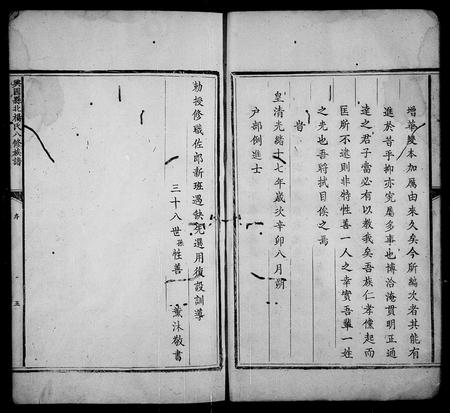 增華變本加厲由來久矣今所編次者其能有
進於昔乎抑亦究屬多事也博洽淹貫明正通
達之君子當必有以教我矣吾族仁孝儻起而
匡所不逮則非特性善一人之幸實吾輩一姓
之先也吾將拭目俟之焉
旹
皇清光緒十七年歲次辛卯八月朔
戶部例進士
勅授修職佐郎新班遇缺先選用復設訓導
三十八世孫性善 薰沐敬書
興國縣北楊氏八修族譜
序
五